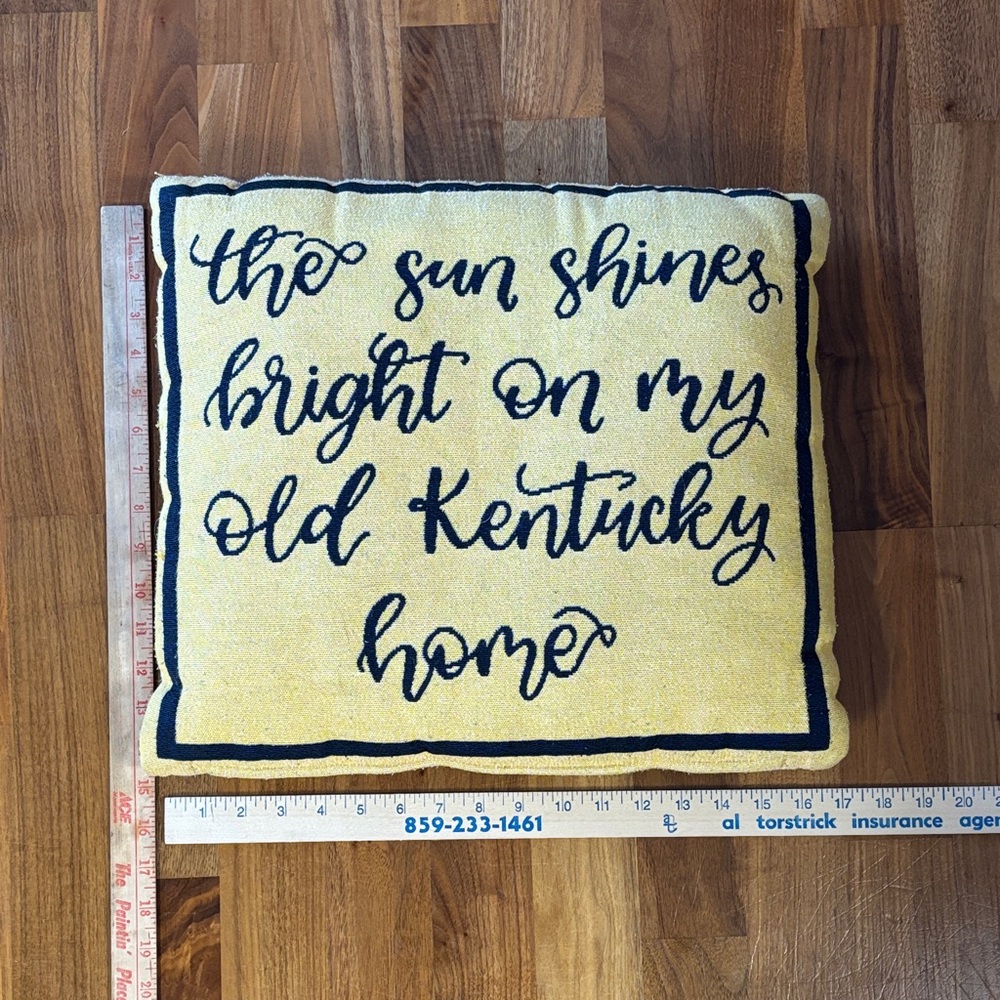 the sun shines
bright on my
old Kentucky
home
1 2 3 4 5 6 7 8 9 10 11 12 13 14 15 16 17 18 19 20 2
859-233-1461 al torstrick insurance agen
1 2 3 4 5 6 7 8 9 10 11 12 13 15 16 17 18 19 20
ACE The Paintin' Place